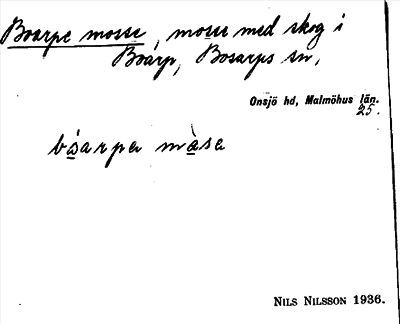 Boarpe mosse, mosse med skog i
Boarp, Bosarps sn,
Onsjö hd, Malmöhus län.
25.
bo̱arpa ma̱sa
NILS NILSSON 1936.